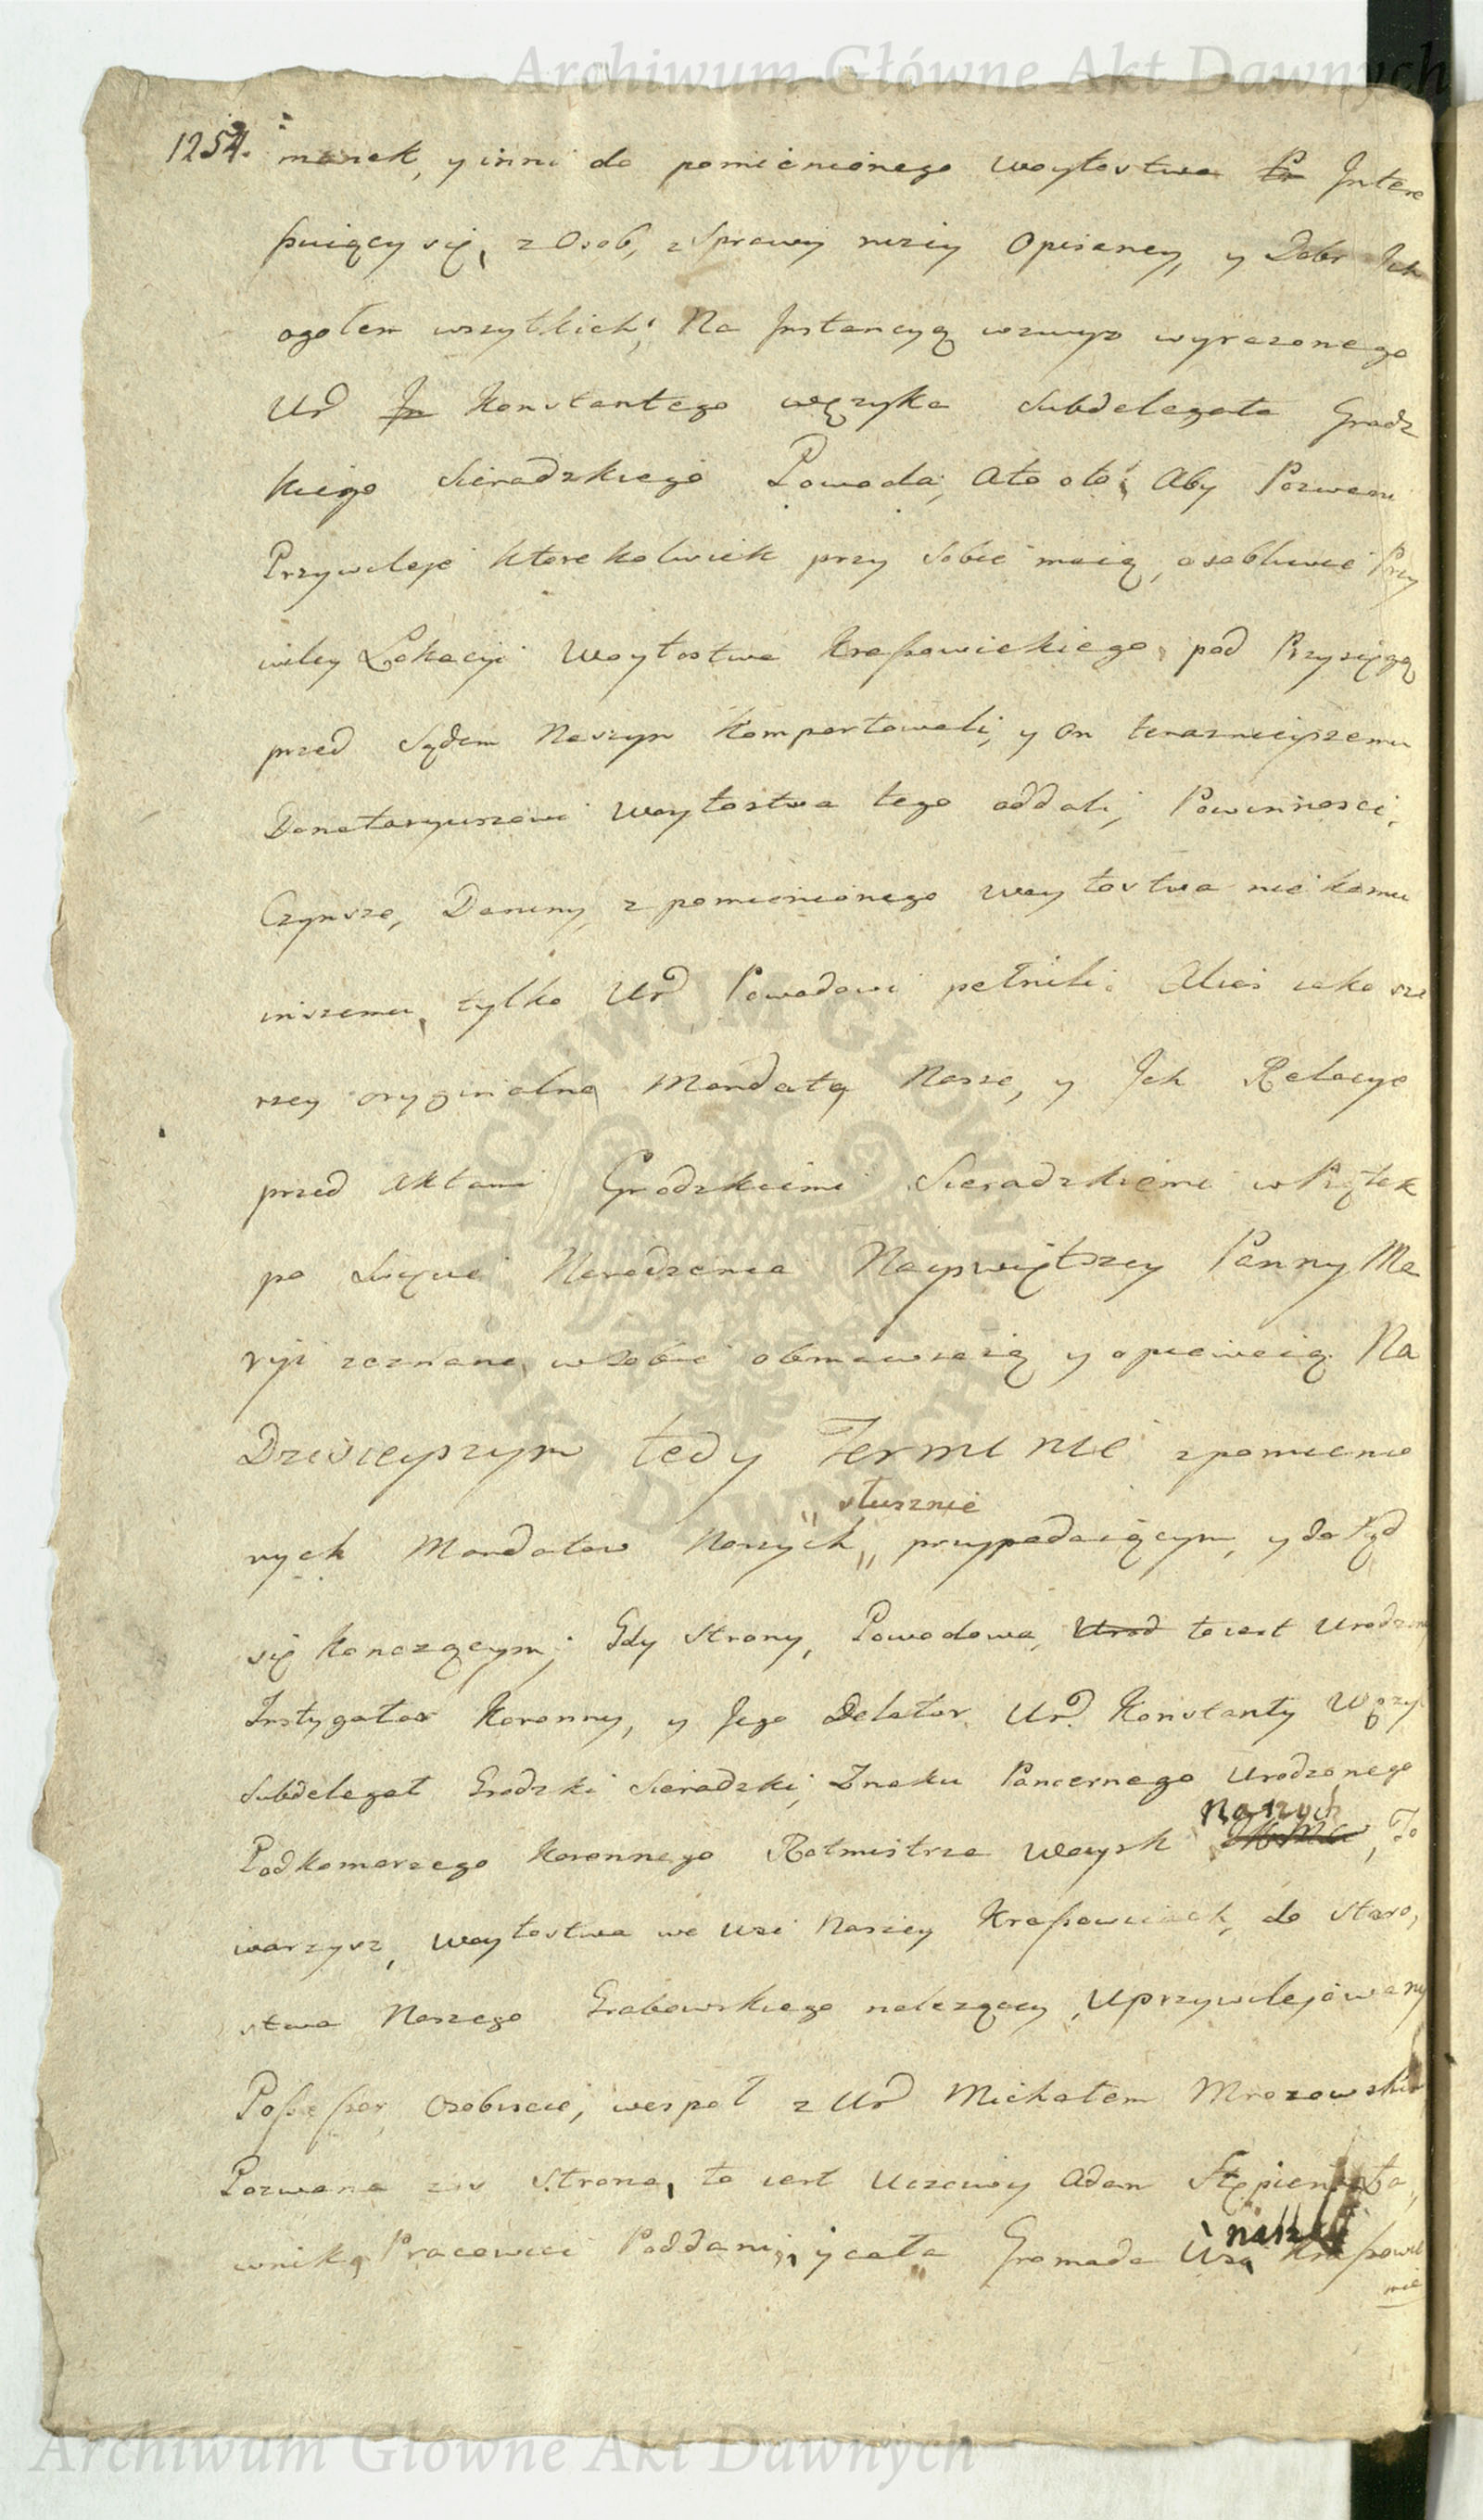 Archiwum Główne Akt Dawnych
1254. manek, y inni do pomienionego woytostwa Pr Intere
ssuiący się, z Osob, z Sprawy niżey Opisaney, y Dobr Ich
ogołem wszytkich; Na Instancyą wzwyz wyrazonego
Ur Konstantego Węzyka Subdelegata Grodz
kiego Sieradzkiego Powoda, Ato oto; Aby Pozwani
Przywileje ktorekolwiek przy Sobie maią, osobliwie Przy
wiley Lokacyi Woytostwa Kraszewickiego, pod Przysięgą
przed Sądem Naszym komportowali, y On teraznieyszemu
Donataryuszowi Woytostwa tego oddali, Powinnosci,
Czynsze, Daniny, z pomienionego woytostwa nie komu
inszemu, tylko Ur Powodowi pełnili. Alias iako sze
rzey oryginalne Mandaty Nasze, y Ich Relacye
przed Aktami Grodzkiemi Sieradzkiemi w Piątek
po Święcie Narodzenia Nayświętszey Panny Ma
ryi zeznane, w Sobie obmawiaią y opiewaią. Na
Dzisieyszym tedy Terminie z pomienio
nych Mandatow Naszych „ słusznie „ przypadaiącym, y do tąd
się konczącym; Gdy Strony, Powodowa, Urod to iest Urodzony
Instygator Koronny, y Jego Delator Ur. Konstanty Węzyk
Subdelegat Grodzki Sieradzki, Znaku Pancernego Urodzonego
Podkomorzego Koronnego Rotmistrza Woysk Naszych, To
warzysz, Woytostwa we Wsi Naszey Kraszewicach, do Staro,
stwa Naszego Grabowskiego nalezący, Uprzywilejowany
Possessor, Osobiscie, wespoł z Ur Michałem Mrozowskim
Pozwana zas Strona, to iest Uczciwy Adam Stępien
wnik, Pracowici Poddani, y cała Gromada Wsi naszey
nie
Archiwum Główne Akt Dawnych